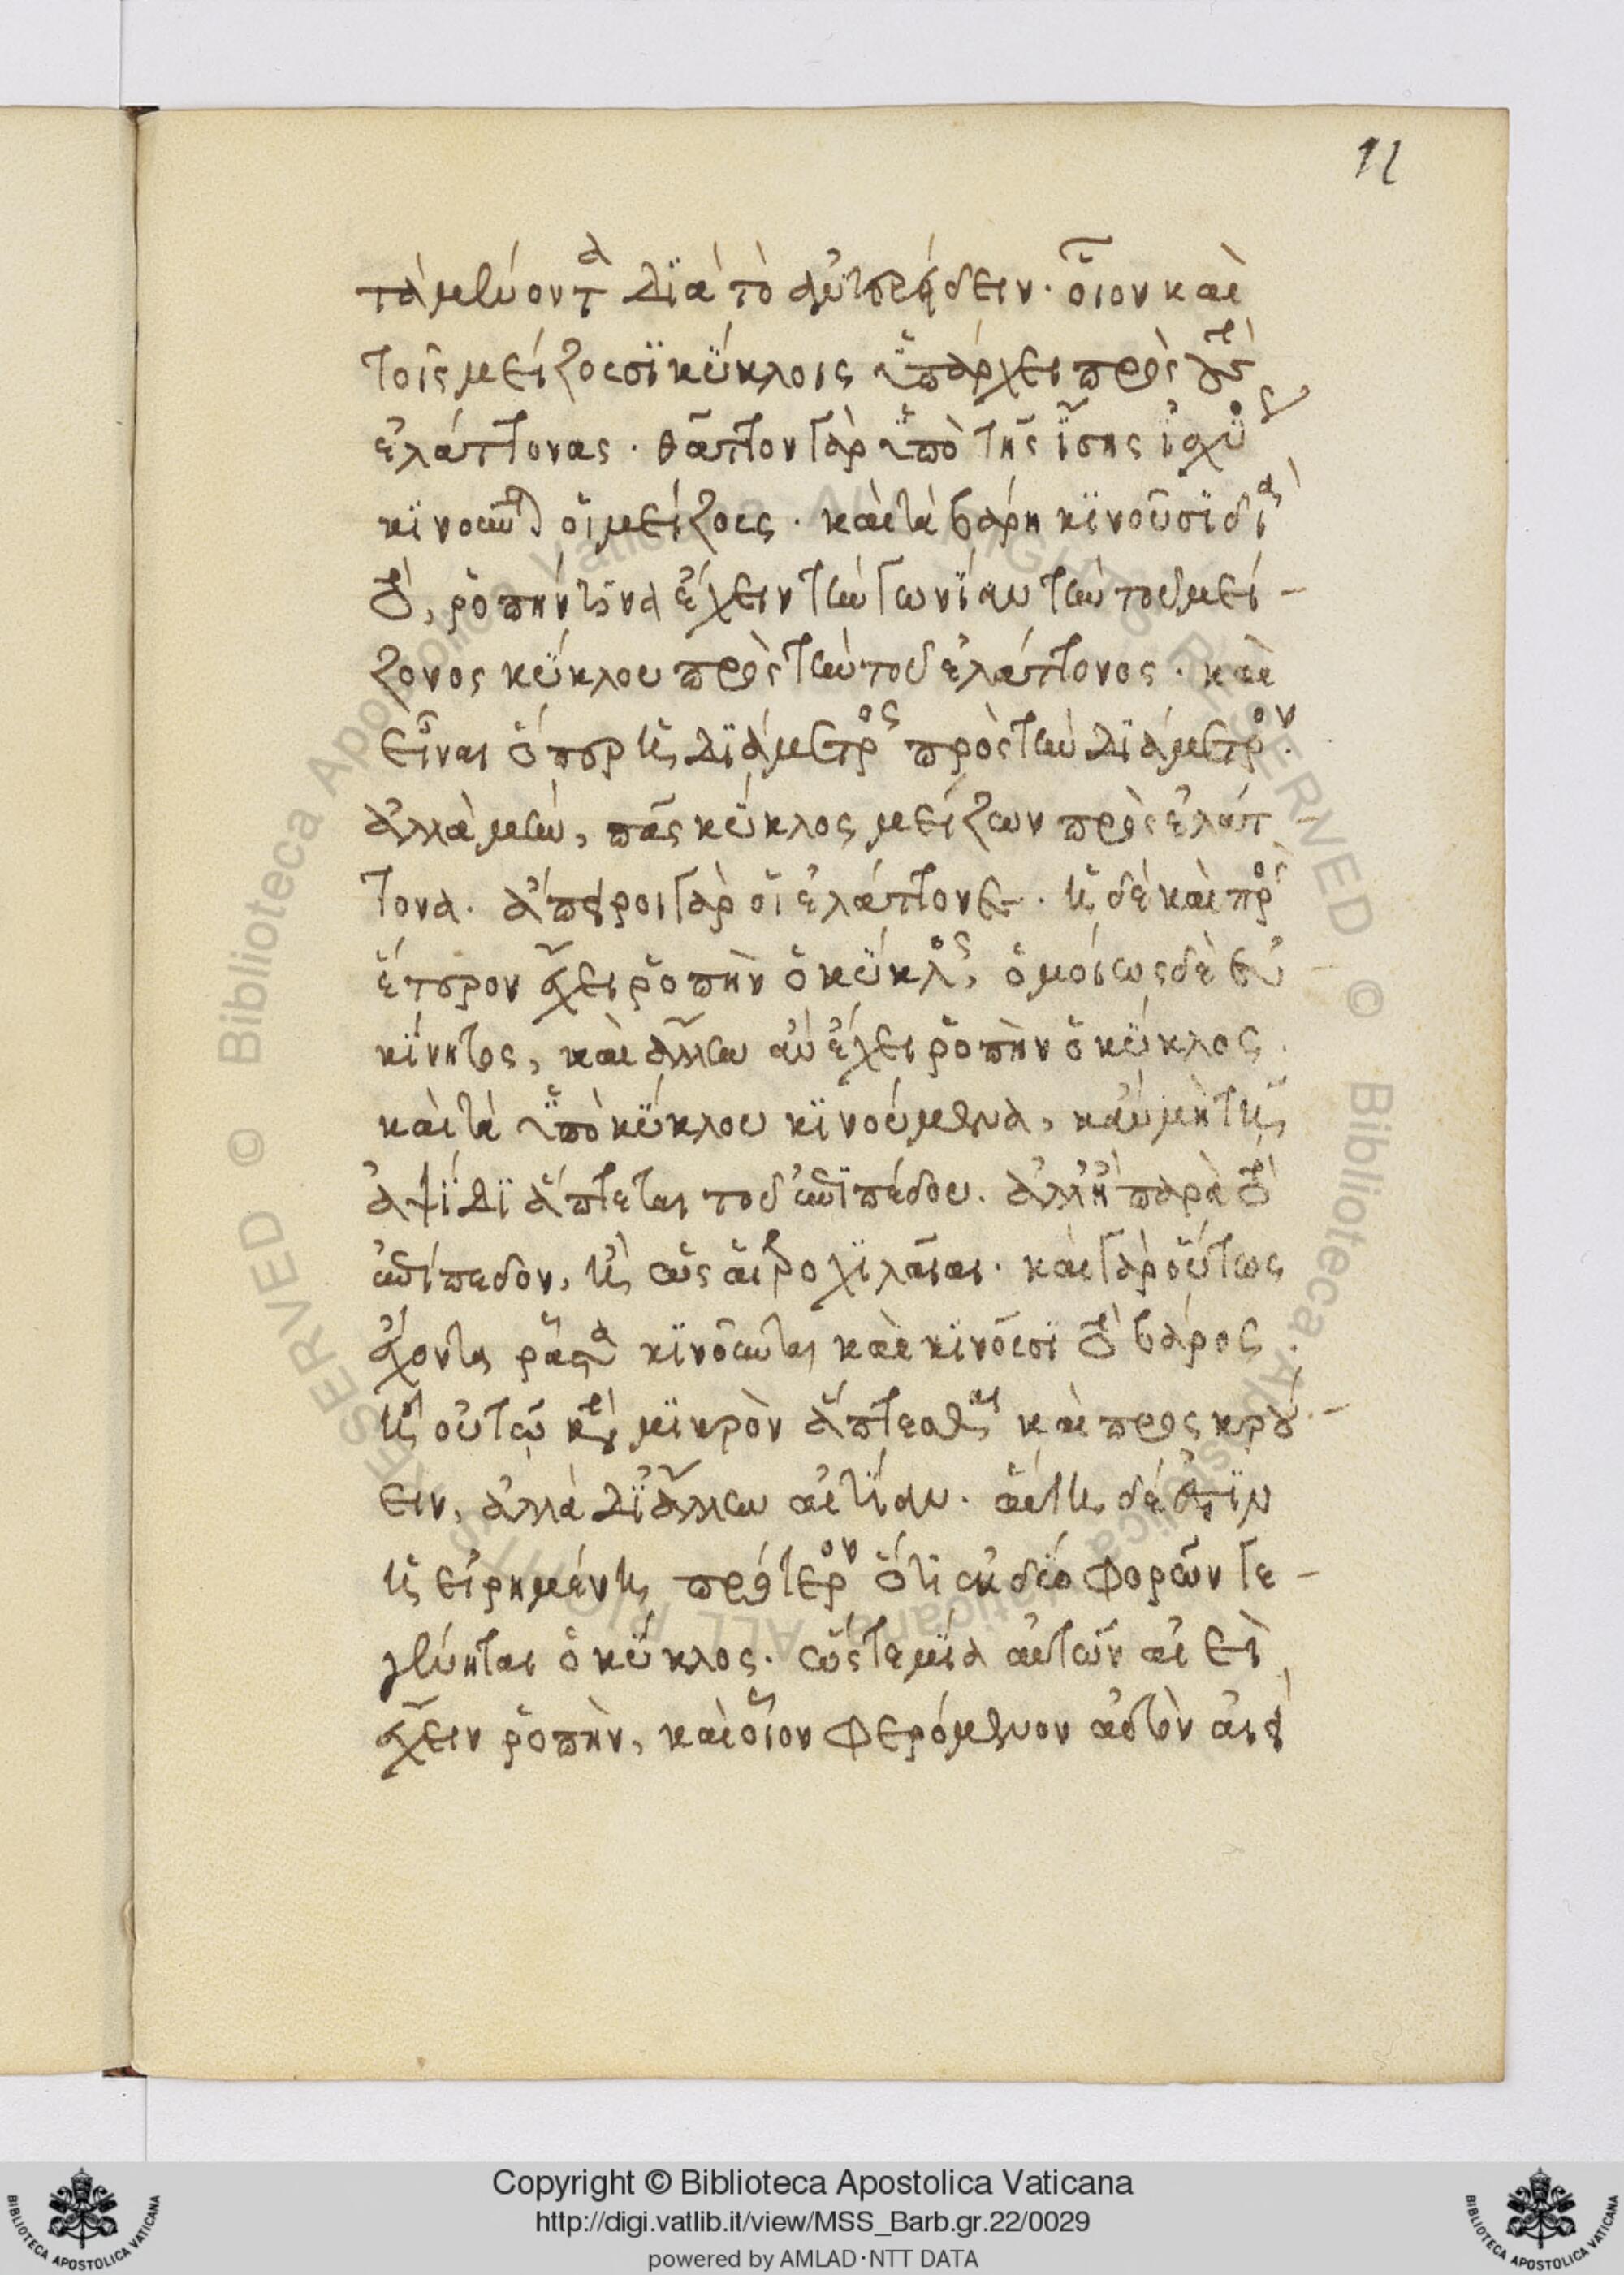 12
τὰ μένοντα διὰ τὸ ἀντερείδειν. οἷον καὶ
τοῖς μείζοσϊ κύκλοις ὑπάρχει πρὸς τοὺς
ἐλάττονας. θᾶττον γὰρ ὑπὸ τῆς ἴσης ἰσχύος
κϊνοῦνται οἱ μείζους. καὶ τὰ βάρη κϊνοῦσϊ διὰ
τὸ, ῥοπήν τϊνα ἔχειν τὴν γωνίαν τὴν τοῦ μεί-
ζονος κύκλου πρὸς τὴν τοῦ ἐλάττονος. καὶ
εἶναι ὅπερ ἡ διάμετρος πρὸς τὴν διάμετρον.
ἀλλὰ μὴν, πᾶς κύκλος μείζων πρὸς ἐλάτ-
τονα. ἄπειροι γὰρ οἱ ἐλάττονες. εἰ δὲ καὶ πρὸς
ἕτερον ἔχει ῥοπὴν ὁ κύκλος, ὁμοίως δὲ εὐ-
κίνητος, καὶ ἄλλην ἂν ἔχει ῥοπὴν ὁ κύκλος.
καὶ τὰ ὑπὸ κύκλου κϊνούμενα, κἂν μὴ τῇ
ἁψίδϊ ἅπτεται τοῦ ἐπιπέδου. ἀλλ' ἢ παρὰ τὸ
ἐπίπεδον, ἢ ὡς αἱ τροχϊλαῖαι. καὶ γὰρ οὕτως
ἔχοντα ῥᾷστα κϊνοῦνται καὶ κϊνοῦσϊ τὸ βάρος.
ἢ οὐ τῷ κατὰ μϊκρὸν ἅπτεσθαι καὶ προς κρού-
ειν, ἀλλὰ δϊ' ἄλλην αἰτίαν. αὕτη δέ ἐστϊν
ἡ εἰρημένη πρότερον ὅτϊ ἐκ δύο φορῶν γε-
γένηται ὁ κύκλος. ὥς τε μία αὐτῶν αἰεὶ
ἔχειν ῥοπὴν, καὶ οἷον φερόμενον αὐτὸν αἰεὶ
Copyright © Biblioteca Apostolica Vaticana
http://digi.vatlib.it/view/MSS_Barb.gr.22/0029
powered by AMLAD·NTT DATA